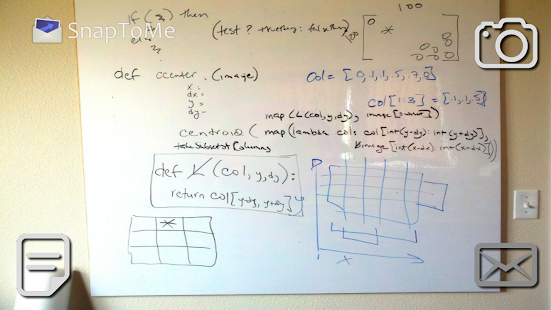 SnapToMe
if (3) then
else
(test ? truething : falsething)
100
0
*
def ccenter (image)
x =
dx =
y =
dy =
col = [0, 1, 1, .5, .7, 0]
col[1:3] = [.1, .1, .5]
centroid (map(lambda col: col[int(y-dy): int(y+dy)],
image[int(x-dx): int(x+dx)]))
take Subset of Columns
def L (col, y, dy):
return col[y-dy, y+dy]
*
x